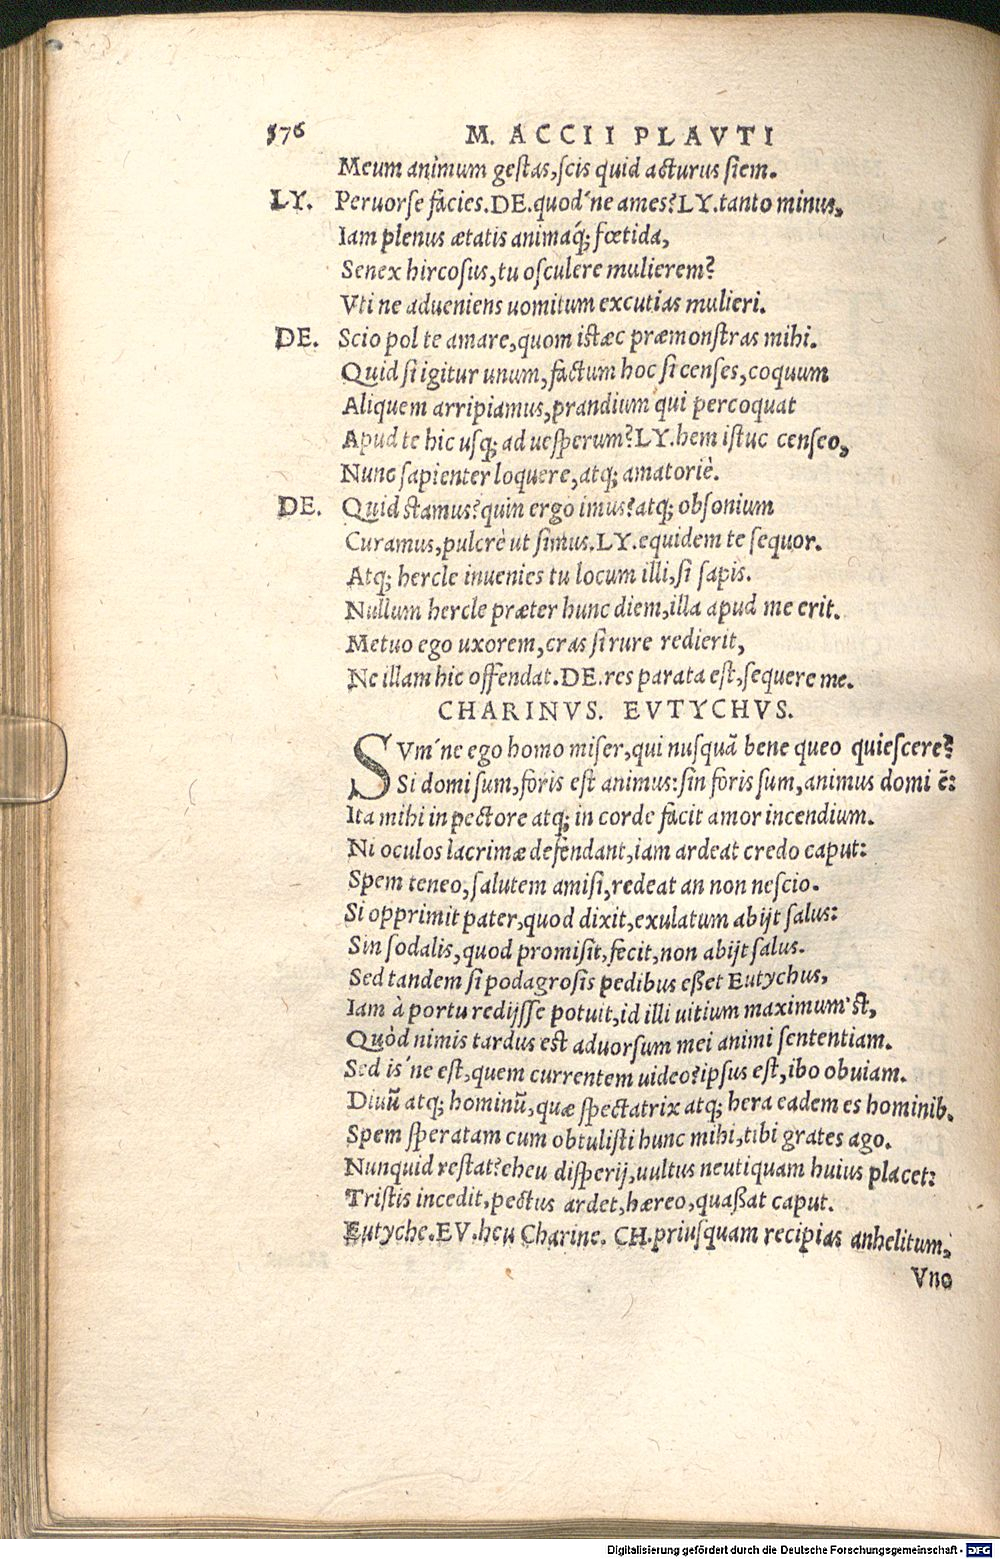 576 M. ACCII PLAVTI
Meum animum gestas, scis quid acturus siem.
LY. Peruorse facies. DE. quod'ne ames? LY. tanto minus,
Iam plenus ætatis animaq́; fœtida,
Senex hircosus, tu osculere mulierem?
Vti ne adueniens uomitum excutias mulieri.
DE. Scio pol te amare, quom istæc præmonstras mihi.
Quid si igitur unum, factum hoc si censes, coquum
Aliquem arripiamus, prandium qui percoquat
Apud te hic usq; ad uesperum? LY. hem istuc censeo,
Nunc sapienter loquere, atq; amatoriè.
DE. Quid stamus? quin ergo imus? atq; obsonium
Curamus, pulcrè ut simus. LY. equidem te sequor.
Atq; hercle inuenies tu locum illi, si sapis.
Nullum hercle præter hunc diem, illa apud me erit.
Metuo ego uxorem, cras si rure redierit,
Ne illam hic offendat. DE. res parata est, sequere me.
CHARINVS. EVTYCHVS.
SVm'ne ego homo miser, qui nusquã bene queo quiescere?
Si domi sum, foris est animus: sin foris sum, animus domi ẽ:
Ita mihi in pectore atq; in corde facit amor incendium.
Ni oculos lacrimæ defendant, iam ardeat credo caput:
Spem teneo, salutem amisi, redeat an non nescio.
Si opprimit pater, quod dixit, exulatum abijt salus:
Sin sodalis, quod promisit, fecit, non abijt salus.
Sed tandem si podagrosis pedibus esset Eutychus,
Iam à portu redijsse potuit, id illi uitium maximum'st,
Quòd nimis tardus est aduorsum mei animi sententiam.
Sed is'ne est, quem currentem uideo? ipsus est, ibo obuiam.
Diuũ atq; hominũ, quæ spectatrix atq; hera eadem es hominib.
Spem speratam cum obtulisti hunc mihi, tibi grates ago.
Nunquid restat? eheu disperij, uultus neutiquam huius placet:
Tristis incedit, pectus ardet, hæreo, quassat caput.
Eutyche. EV. heu Charine. CH. priusquam recipias anhelitum,
Vno
Digitalisierung gefördert durch die Deutsche Forschungsgemeinschaft - DFG